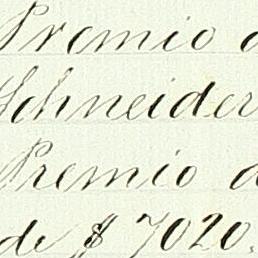 Premio d
Schneider
Premio d
de $ 7020.